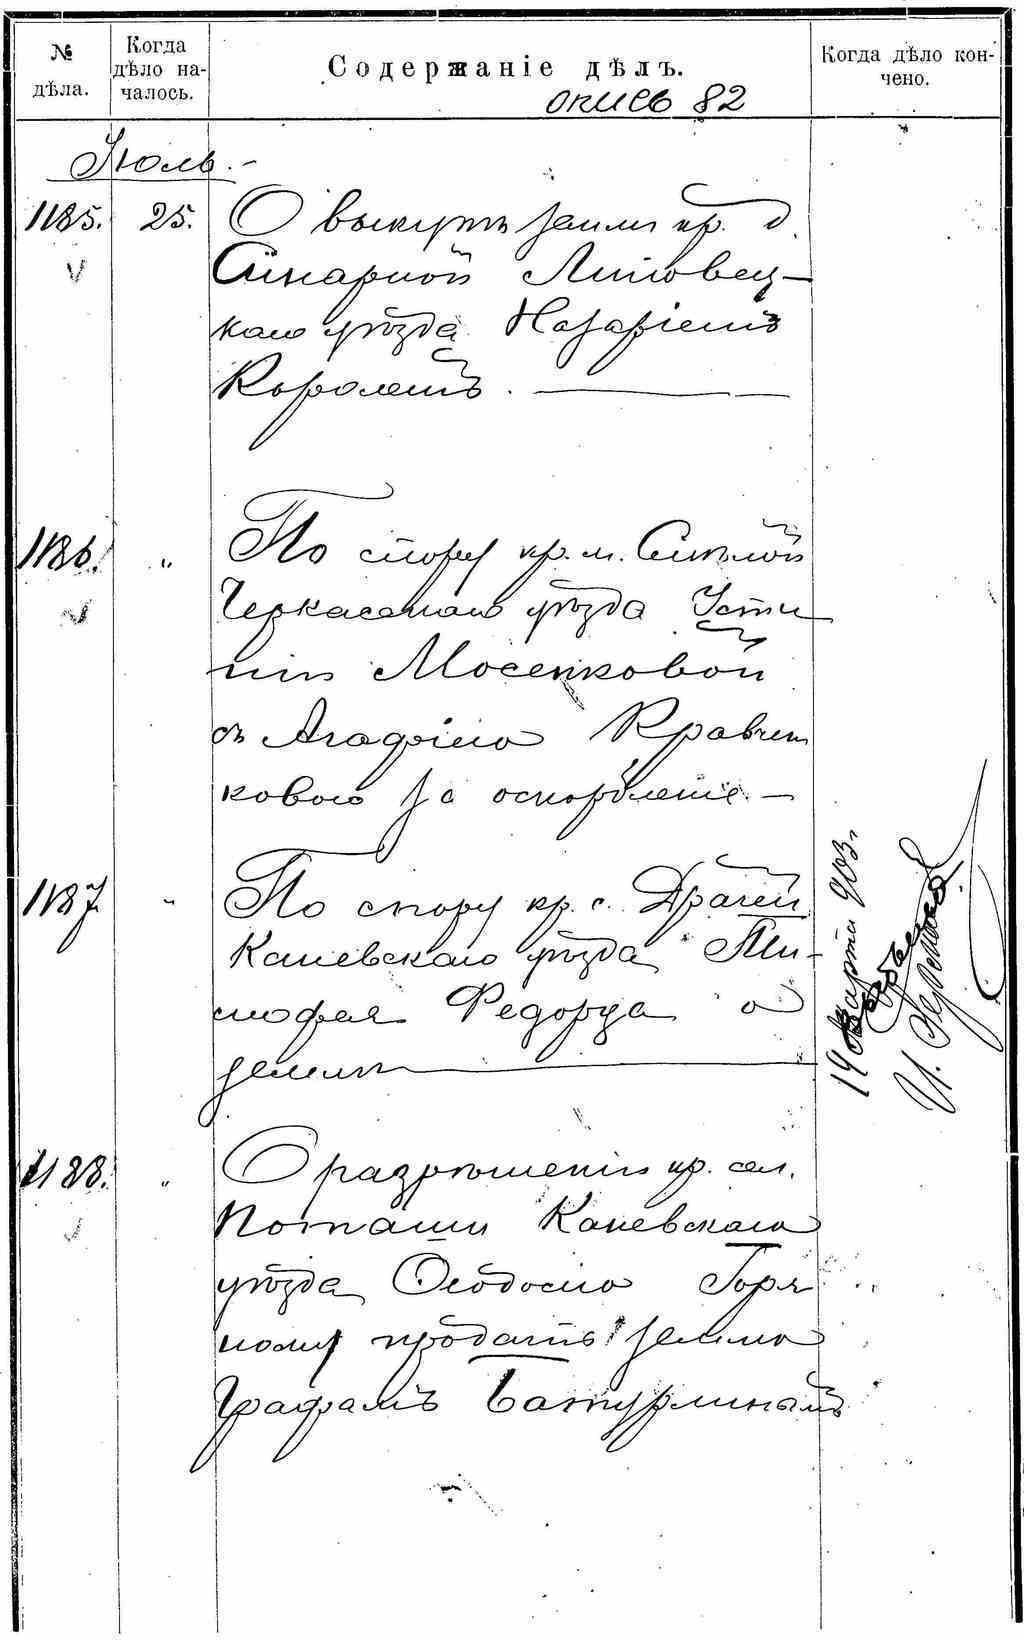 № дѣла.
Когда дѣло на-
чалось.
Содержаніе дѣлъ.
Когда дѣло кон-
чено.
опись 82
Июль.-
1185. 25. О выкупѣ земли кр. д.
Синарной Липовец-
каго уѣзда Назаріемъ
Королемъ.
1186. " По спору кр. м. Смѣлой
Черкасскаго уѣзда Усти
ніи Мосенковой
съ Агафіею Кравчен
ковою за оскорбленіе.-
1187. " По спору кр. с. Драчей
Каневскаго уѣзда Ти-
мофея Федорца о
земли
19 марта 903 г.
И.
1188. " О разрѣшеніи кр. сел.
Поташни Каневскаго
уѣзда Ѳеодосію Горя
ному продать землю
Графамъ Батурлинымъ